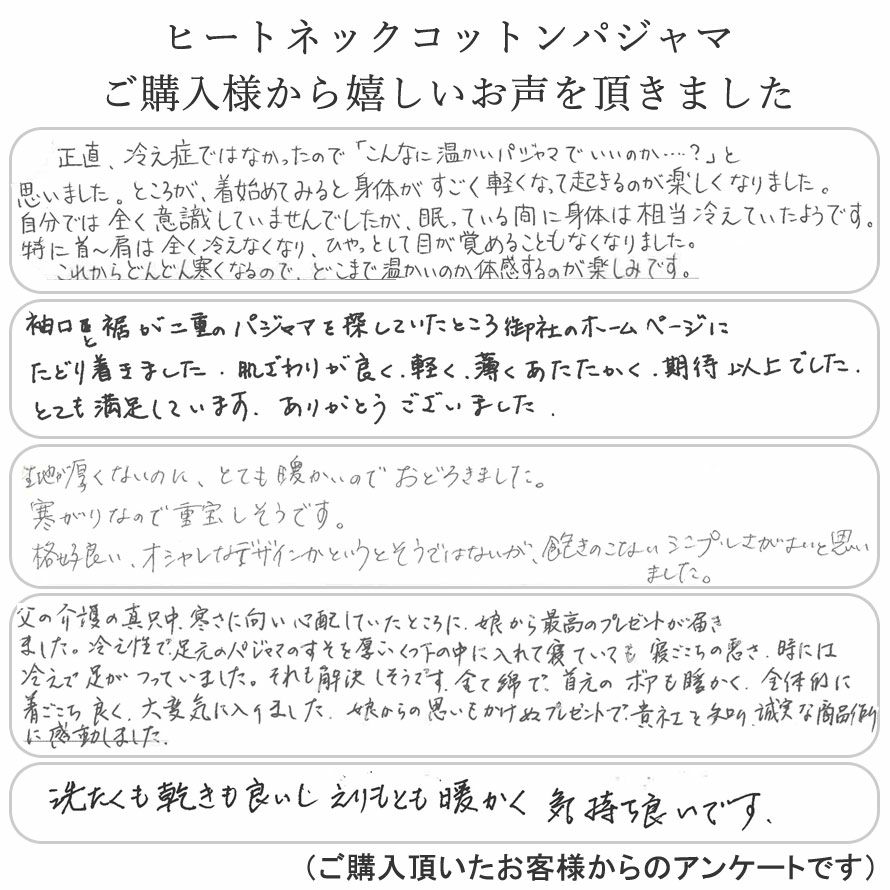 ヒートネックコットンパジャマ
ご購入様から嬉しいお声を頂きました
正直、冷え症ではなかったので「こんなに温かいパジャマでいいのか…‥?」と
思いました。ところが、着始めてみると身体がすごく軽くなって起きるのが楽しくなりました。
自分では全く意識していませんでしたが、眠っている間に身体は相当冷えていたようです。
特に首〜肩は全く冷えなくなり、ひやっとして目が覚めることもなくなりました。
これからどんどん寒くなるので、どこまで温かいのか体感するのが楽しみです。
袖口と裾が二重のパジャマを探していたところ御社のホームページに
たどり着きました。肌ざわりが良く、軽く、薄くあたたかく、期待以上でした。
とても満足しています。ありがとうございました。
生地が厚くないのに、とても暖かいのでおどろきました。
寒がりなので重宝しそうです。
格好良い、オシャレなデザインかというとそうではないが、飽きのこないシンプルさがよいと思い
ました。
父の介護の真只中、寒さに向い心配していたところに、娘から最高のプレゼントが届き
ました。冷え性で、足元のパジャマのすそを厚いくつ下の中に入れて寝ていても寝ごこちの悪さ、時には
冷えで足がつっていました。それも解決しそうです。全て綿で、首元のボアも暖かく、全体的に
着ごこち良く、大変気に入りました。娘からの思いもかけぬプレゼントで、貴社を知り、誠実な商品作り
に感動しました。
洗たくも乾きも良いし えりもとも暖かく 気持ち良いです。
(ご購入頂いたお客様からのアンケートです)